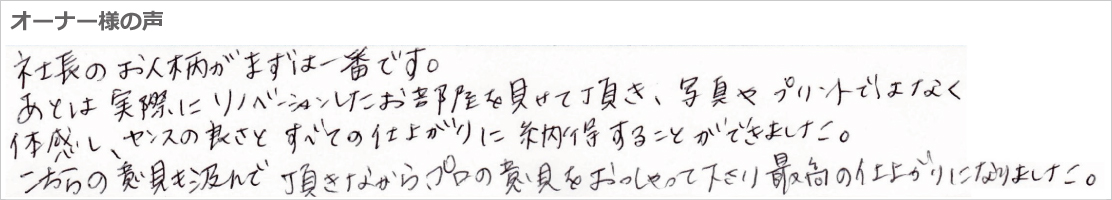 オーナー様の声
社長のお人柄がまずは一番です。
あとは実際にリノベーションしたお部屋を見せて頂き、写真やプリントではなく
体感し、センスの良さとすべての仕上がりに納得することができました。
こちらの意見も汲んで頂きながらプロの意見をおっしゃって下さり最高の仕上がりになりました。